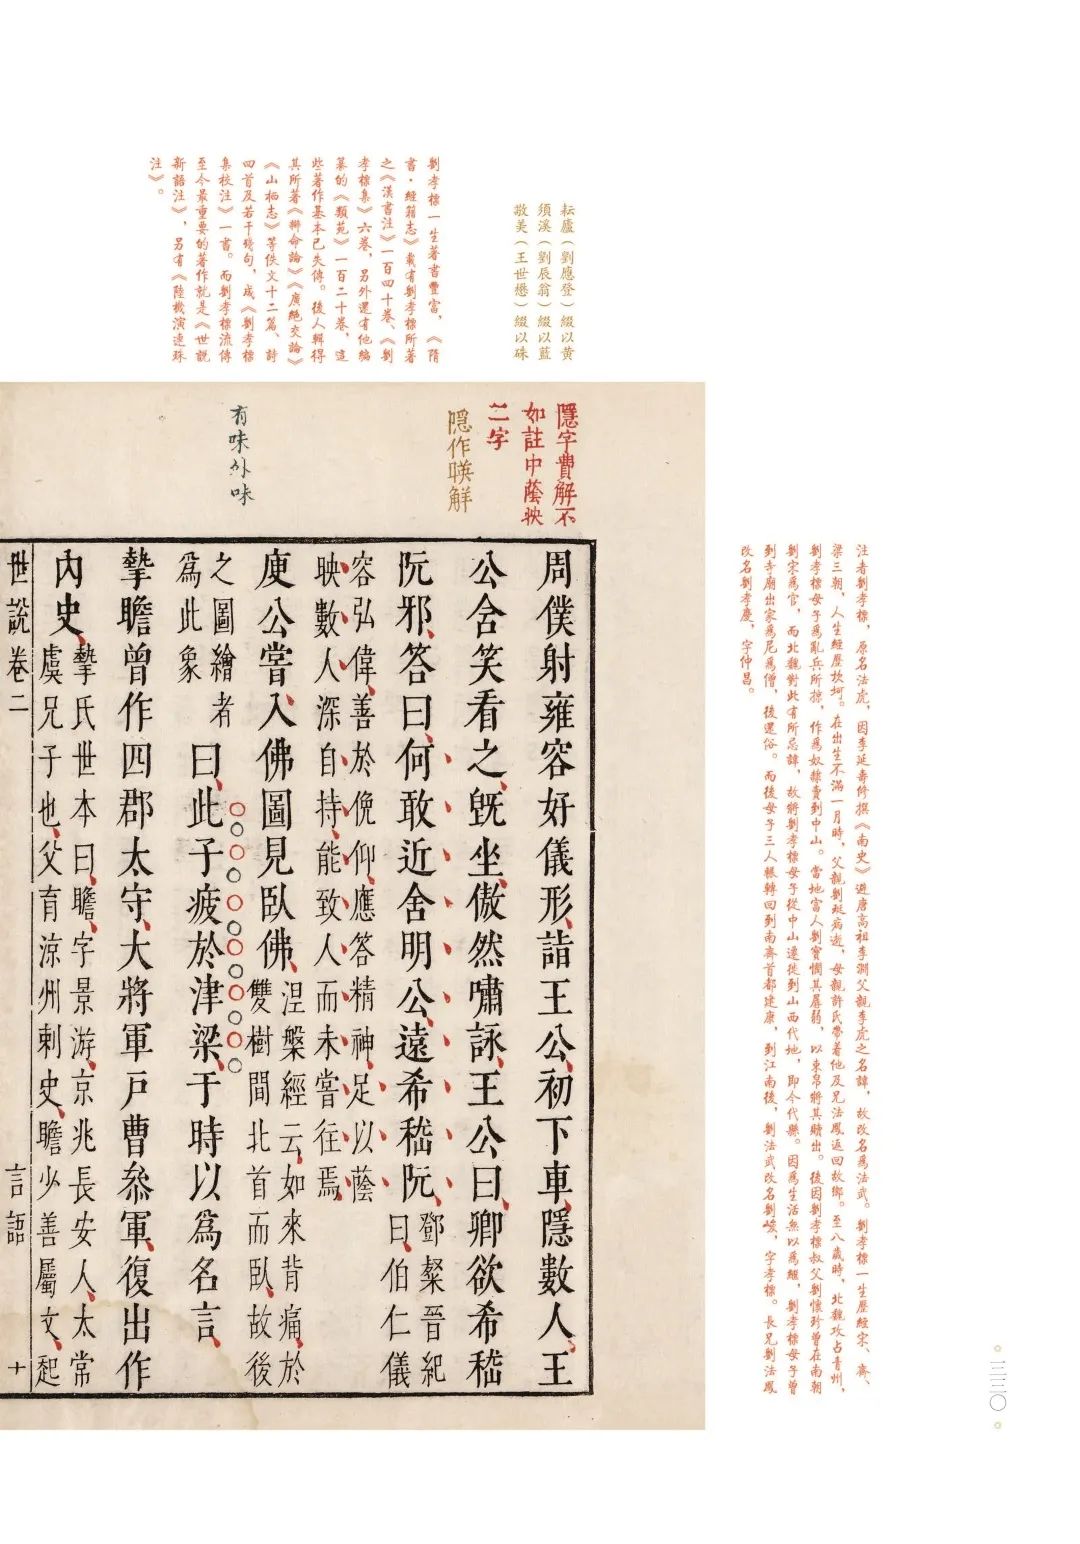 耘廬（劉應登）綴以黃
須溪（劉辰翁）綴以藍
敬美（王世懋）綴以硃
劉孝標一生著書豐富，《隋
書·經籍志》載有劉孝標所著
之《漢書注》一百四十卷、《劉
孝標集》六卷，另外還有他編
纂的《類苑》一百二十卷，這
些著作基本已失傳。後人輯得
其所著《辯命論》《廣絕交論》
《山栖志》等佚文十二篇、詩
四首及若干殘句，成《劉孝標
集校注》一書。而劉孝標流傳
至今最重要的著作就是《世説
新語注》，另有《陸機演連珠
注》。
注者劉孝標，原名法虎，因李延壽修撰《南史》避唐高祖李淵父親李虎之名諱，故改名爲法武。劉孝標一生歷經宋、齊、
梁三朝，人生經歷坎坷。在出生不滿一月時，父親劉珽病逝，母親許氏帶着他及兄法鳳返回故鄉。至八歲時，北魏攻占青州，
劉孝標母子爲亂兵所掠，作爲奴隸賣到中山。當地富人劉實憫其孱弱，以束帛將其贖出。後因劉孝標叔父劉懷珍曾在南朝
劉宋爲官，而北魏對此有所忌諱，故將劉孝標母子從中山遷徙到山西代地，即今代縣。因爲生活無以爲繼，劉孝標母子曾
到寺廟出家爲尼爲僧，後還俗。而後母子三人輾轉回到南齊首都建康，到江南後，劉法武改名劉峻，字孝標。長兄劉法鳳
改名劉孝慶，字仲昌。
隱字費解不
如註中蔭映
二字
隱作暎解
有味外味
周僕射雍容好儀形、詣王公、初下車、隱數人、王
公含笑看之、旣坐、傲然嘯詠、王公曰、卿欲希嵇
阮邪、答曰、何敢近舍明公、遠希嵇阮、
鄧粲晉紀
曰、伯仁儀
容弘偉、善於俛仰、應答精神、足以蔭
映數人、深自持、能致人、而未嘗往焉、
庾公嘗入佛圖見臥佛、
涅槃經云、如來背痛、於
雙樹間北首而臥、故後
之圖繪者
爲此象
曰、此子疲於津梁、于時以爲名言、
摯瞻曾作四郡太守、大將軍戶曹叅軍、復出作
內史、
摯氏世本曰、瞻、字景游、京兆長安人、太常
虞兄子也、父育涼州刺史、瞻少善屬文、起
世說卷二 言語 十
三三〇